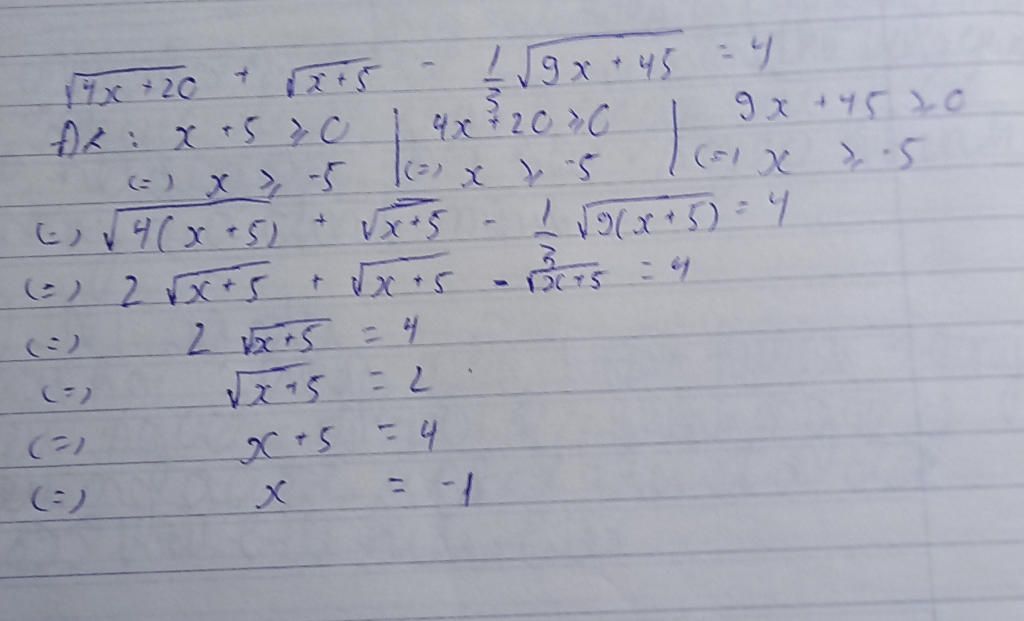 √(4x+20) + √(x+5) - 1/3 √(9x+45) = 4
ĐK: x+5 ≥ 0 | 4x+20 ≥ 0 | 9x+45 ≥ 0
(=) x ≥ -5 | (=) x ≥ -5 | (=) x ≥ -5
(=) √(4(x+5)) + √(x+5) - 1/3 √(9(x+5)) = 4
(=) 2√(x+5) + √(x+5) - √(x+5) = 4
(=) 2√(x+5) = 4
(=) √(x+5) = 2
(=) x+5 = 4
(=) x = -1